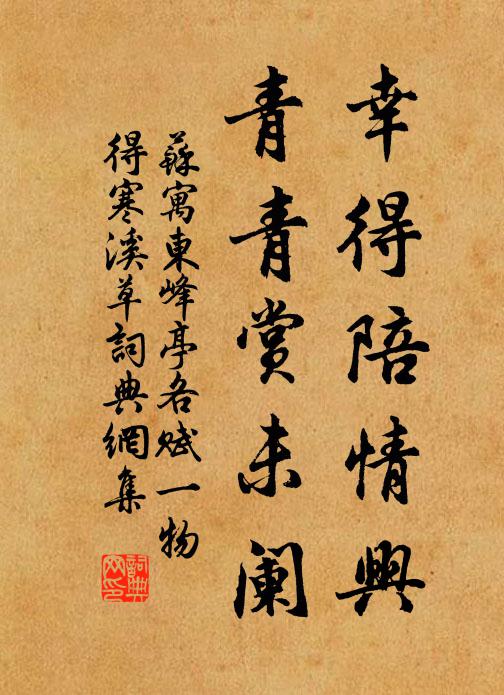 幸得陪情興
青青賞未阑
蘇寓東峰亭各赋一物
得寒溪草詞典網集
詞典网印